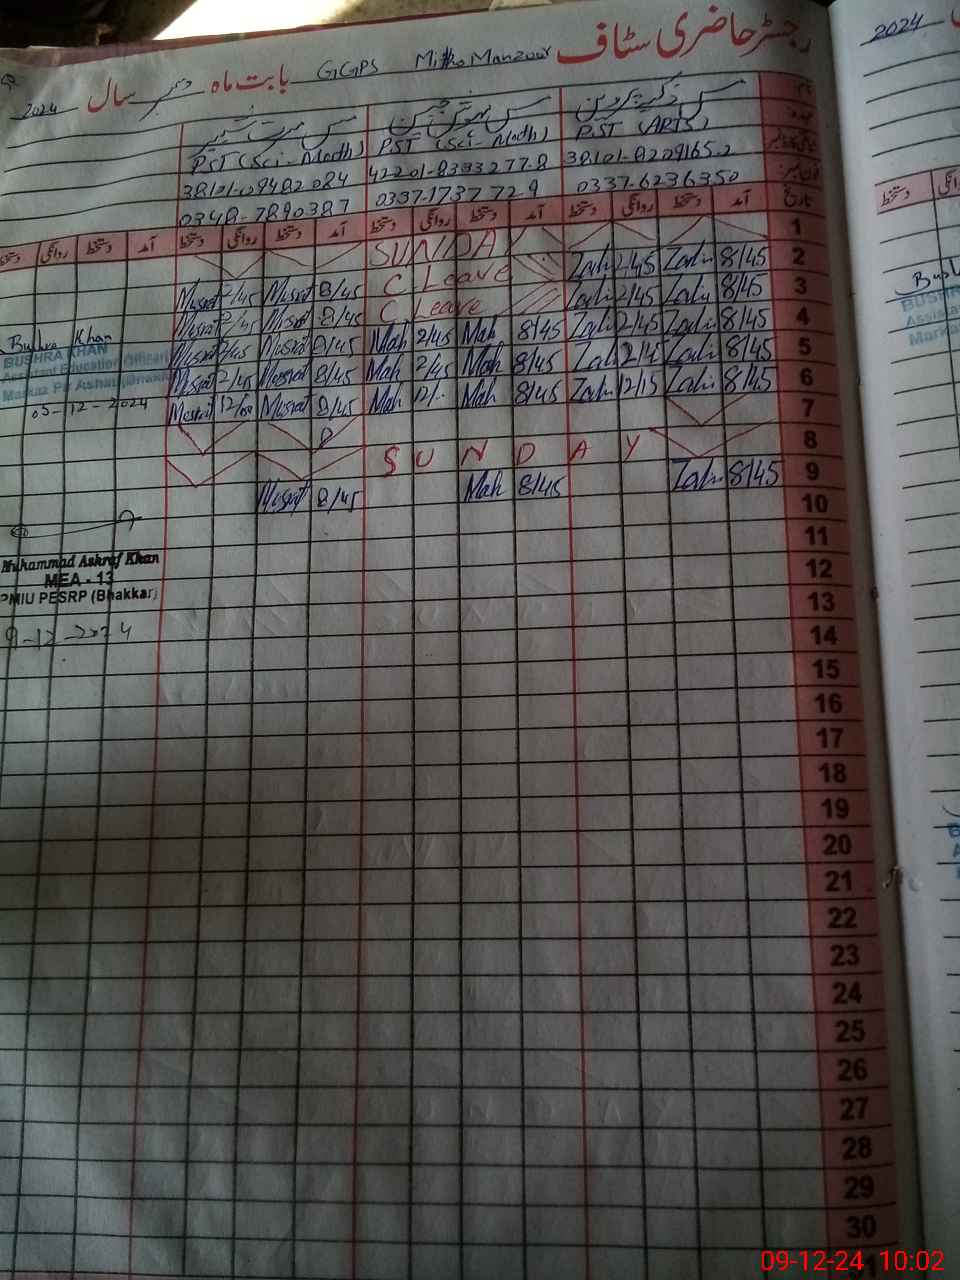 رجسٹر حاضری سٹاف
GGPS Mithо Manzoor بابت ماہ دسمبر سال 2024
2024
مس زکیہ پروین مس مہوش جبین مس مسرت
PST (ARTS) PST (Sci-Math) PST (Sci-Math)
38101-8209165-2 42201-8333277-8 38101-0948208-4
0337-6236350 0337-1737729 0348-7890387
تاریخ آمد دستخط روانگی دستخط آمد دستخط روانگی دستخط آمد دستخط روانگی دستخط آمد دستخط روانگی دستخط
1 SUNDAY
2 8/45 Zaki 2/45 Zaki C. Leave 8/45 Musrat 2/45 Musrat
3 8/45 Zaki 2/45 Zaki C. Leave 8/45 Musrat 2/45 Musrat
4 8/45 Zaki 2/45 Zaki 8/45 Mah 2/45 Mah 8/45 Musrat 2/45 Musrat
5 8/45 Zaki 2/45 Zaki 8/45 Mah 2/45 Mah 8/45 Musrat 2/45 Musrat
6 8/45 Zaki 12/15 Zaki 8/45 Mah 12/.. Mah 8/45 Musrat 12/00 Musrat
7
8 SUNDAY
9 8/45 Zaki 8/45 Mah 8/45 Musrat
10
11
12
13
14
15
16
17
18
19
20
21
22
23
24
25
26
27
28
29
30
Bushra Khan
BUSHRA KHAN
Assistant Education Officer
Markaz Pir Ashab (Bhakkar)
05-12-2024
Muhammad Ashraf Khan
MEA - 13
PMIU PESRP (Bhakkar)
9-12-2024
09-12-24 10:02